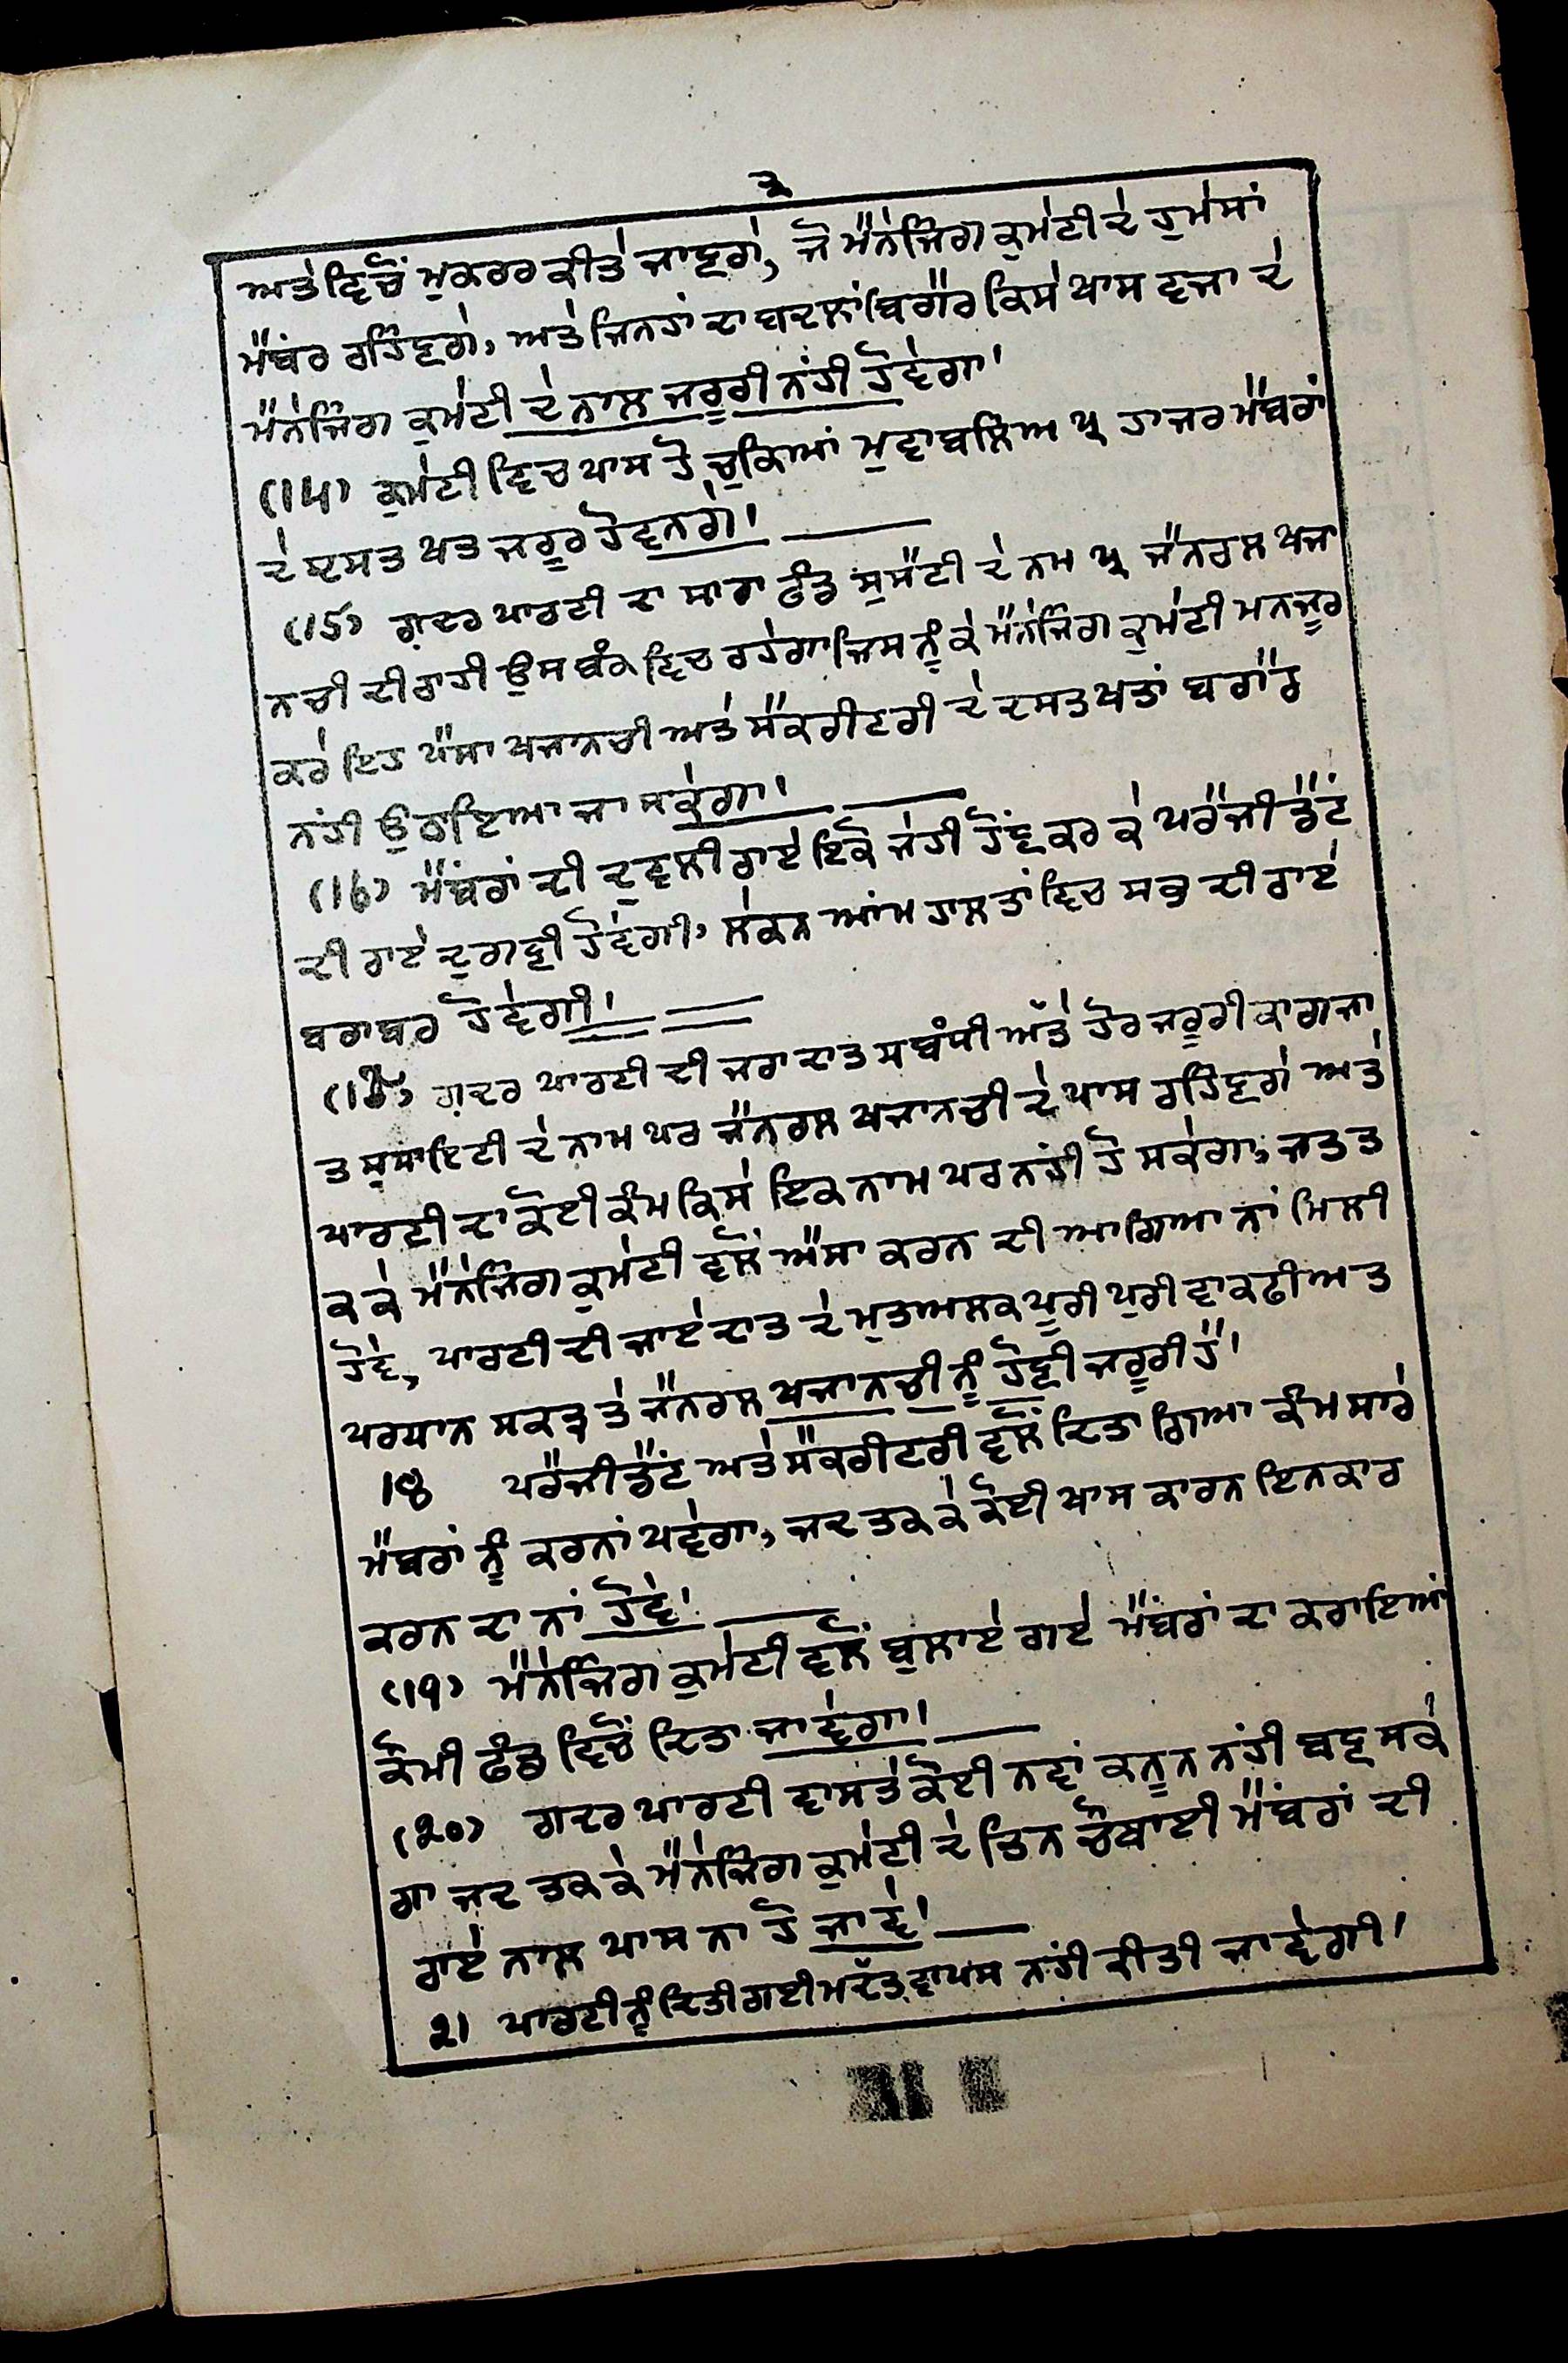 ੨
ਅਤੇ ਵਿਚੋਂ ਮੁਕਰਰ ਕੀਤੇ ਜਾਵਣਗੇ, ਜੋ ਮੈਨੇਜਿੰਗ ਕੁਮੇਟੀ ਦੇ ਹੁਮੇਸਾਂ
ਮੈਂਬਰ ਰਹਿਣਗੇ, ਅਤੇ ਜਿਨਹਾਂ ਦਾ ਬਦਲਨਾਂ ਬਿਗੈਰ ਕਿਸੇ ਖਾਸ ਵਜਾ ਦੇ
ਮੈਨੇਜਿੰਗ ਕੁਮੇਟੀ ਦੇ ਨਾਲ ਜਰੂਰੀ ਨਹੀਂ ਹੋਵੇਗਾ।
(14) ਕੁਮੇਟੀ ਵਿਚ ਪਾਸ ਹੋ ਚੁਕਿਆਂ ਪ੍ਰ ਹਾਜਰ ਮੈਂਬਰਾਂ
ਦੇ ਦਸਤ ਖਤ ਜਰੂਰ ਹੋਵਨਗੇ।
(15) ਗ਼ਦਰ ਪਾਰਟੀ ਦਾ ਸਾਰਾ ਫੰਡ ਸੁਸੈਟੀ ਦੇ ਨਾਮ ਪ੍ਰ ਜੈਨਰਲ ਖਜਾ
ਨਚੀ ਦੀ ਰਾਹੀ ਉਸ ਬੰਕ ਵਿਚ ਰਹੇਗਾ ਜਿਸ ਨੂੰ ਕੇ ਮੈਨੇਜਿੰਗ ਕੁਮੇਟੀ ਮਨਜੂਰ
ਕਰੇ ਇਹ ਪੈਸਾ ਖਜਾਨਚੀ ਅਤੇ ਸੈਕਰੀਟਰੀ ਦੇ ਦਸਤਖਤਾਂ ਬਗੈਰ
ਨਹੀਂ ਉਠਾਇਆ ਜਾ ਸਕੇਗਾ।
(16) ਮੈਂਬਰਾਂ ਦੀ ਦੁਵਲੀ ਰਾਏ ਇਕੋ ਜੇਹੀ ਹੋਂਣ ਕਰ ਕੇ ਪਰੈਜੀਡੈਂਟ
ਦੀ ਰਾਏ ਦੁਗਣੀ ਹੋਵੇਗੀ, ਲੇਕਨ ਆਂਮ ਹਾਲਤਾਂ ਵਿਚ ਸਭ ਦੀ ਰਾਏ
ਬਰਾਬਰ ਹੋਵੇਗੀ।
(17) ਗ਼ਦਰ ਪਾਰਟੀ ਦੀ ਜਰਾਦਾਤ ਸਬੰਧੀ ਅੱਤੇ ਹੋਰ ਜਰੂਰੀ ਕਾਗਜਾ
ਤ ਸੁਸਾਇਟੀ ਦੇ ਨਾਮ ਪਰ ਜੈਨਰਲ ਖਜਾਨਚੀ ਦੇ ਪਾਸ ਰਹਿਣਗੇ ਅਤੇ
ਪਾਰਟੀ ਦਾ ਕੋਈ ਕੰਮ ਕਿਸੇ ਇਕ ਨਾਮ ਪਰ ਨਹੀਂ ਹੋ ਸਕੇਗਾ, ਜਤਤ
ਕ ਕੇ ਮੈਨੇਜਿੰਗ ਕੁਮੇਟੀ ਵਲੋਂ ਐਸਾ ਕਰਨ ਦੀ ਆਗਿਆ ਨਾਂ ਮਿਲੀ
ਹੋਵੇ, ਪਾਰਟੀ ਦੀ ਜਾਏਦਾਤ ਦੇ ਮੁਤਅਲਕ ਪੂਰੀ ਪੁਰੀ ਵਾਕਫੀਅਤ
ਪਰਧਾਨ ਸਕਤ੍ਰ ਤੇ ਜੈਨਰਲ ਖਜਾਨਚੀ ਨੂੰ ਹੋਣੀ ਜਰੂਰੀ ਹੈ।
18 ਪਰੈਜੀਡੈਂਟ ਅਤੇ ਸੈਕਰੀਟਰੀ ਵਲੋਂ ਦਿਤਾ ਗਿਆ ਕੰਮ ਸਾਰੇ
ਮੈਂਬਰਾਂ ਨੂੰ ਕਰਨਾਂ ਪਵੇਗਾ, ਜਦ ਤਕ ਕੇ ਕੋਈ ਖਾਸ ਕਾਰਨ ਇਨਕਾਰ
ਕਰਨ ਦਾ ਨਾਂ ਹੋਵੇ।
(19) ਮੈਨੇਜਿੰਗ ਕੁਮੇਟੀ ਵਲੋਂ ਬੁਲਾਏ ਗਏ ਮੈਂਬਰਾਂ ਦਾ ਕਰਾਇਆਂ
ਕੌਮੀ ਫੰਡ ਵਿਚੋਂ ਦਿਤਾ ਜਾਵੇਗਾ।
(20) ਗਦਰ ਪਾਰਟੀ ਵਾਸਤੇ ਕੋਈ ਨਵਾਂ ਕਨੂਨ ਨਹੀਂ ਬਣ ਸਕੇ
ਗਾ ਜਦ ਤਕ ਕੇ ਮੈਨੇਜਿੰਗ ਕੁਮੇਟੀ ਦੇ ਤਿਨ ਚੌਥਾਈ ਮੈਂਬਰਾਂ ਦੀ
ਰਾਏ ਨਾਲ ਪਾਸ ਨਾ ਹੋ ਜਾਵੇ।
21 ਪਾਰਟੀ ਨੂੰ ਦਿਤੀ ਗਈ ਮਦੱਤ ਵਾਪਸ ਨਹੀਂ ਕੀਤੀ ਜਾਵੇਗੀ।